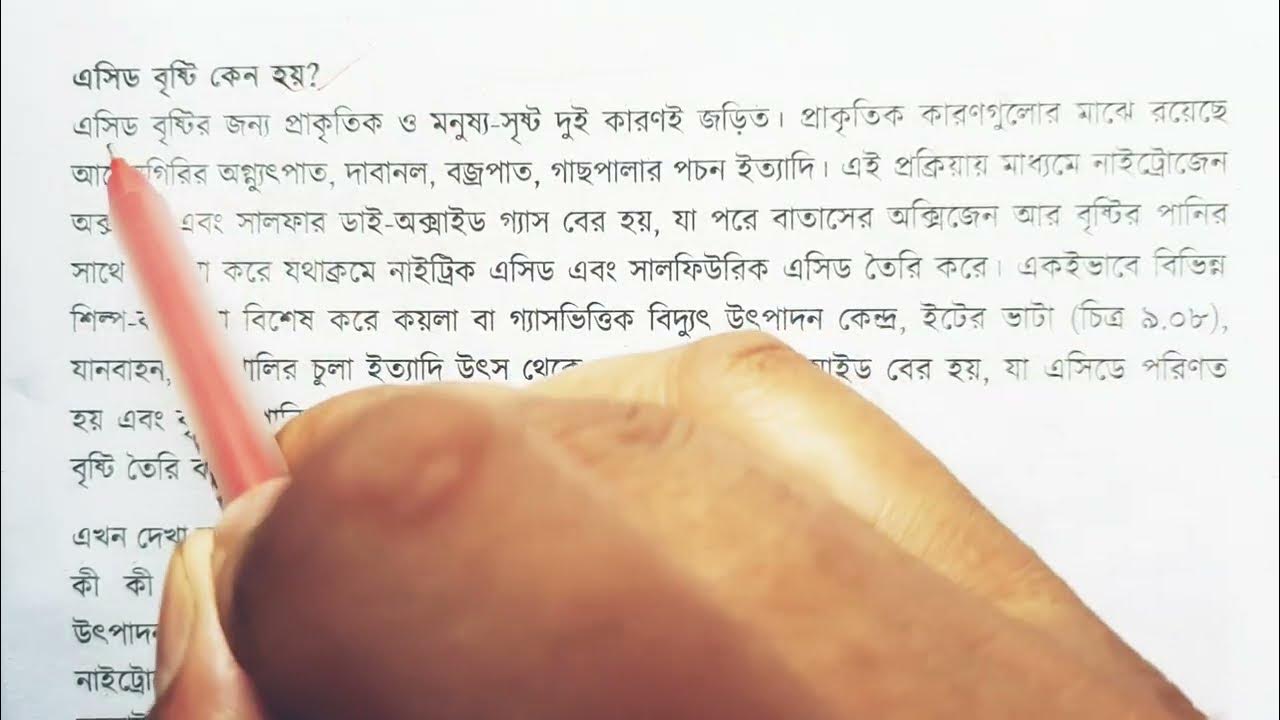 এসিড বৃষ্টি কেন হয়?
এসিড বৃষ্টির জন্য প্রাকৃতিক ও মনুষ্য-সৃষ্ট দুই কারণই জড়িত। প্রাকৃতিক কারণগুলোর মাঝে রয়েছে
অগ্ন্যুৎপাত, দাবানল, বজ্রপাত, গাছপালার পচন ইত্যাদি। এই প্রক্রিয়ায় মাধ্যমে নাইট্রোজেন
এবং সালফার ডাই-অক্সাইড গ্যাস বের হয়, যা পরে বাতাসের অক্সিজেন আর বৃষ্টির পানির
সাথে করে যথাক্রমে নাইট্রিক এসিড এবং সালফিউরিক এসিড তৈরি করে। একইভাবে বিভিন্ন
শিল্প- বিশেষ করে কয়লা বা গ্যাসভিত্তিক বিদ্যুৎ উৎপাদন কেন্দ্র, ইটের ভাটা (চিত্র ৯.০৮),
যানবাহন, চুলা ইত্যাদি উৎস থেকে বের হয়, যা এসিডে পরিণত
হয় এবং
বৃষ্টি তৈরি
এখন দেখা
কী কী
উৎপাদন